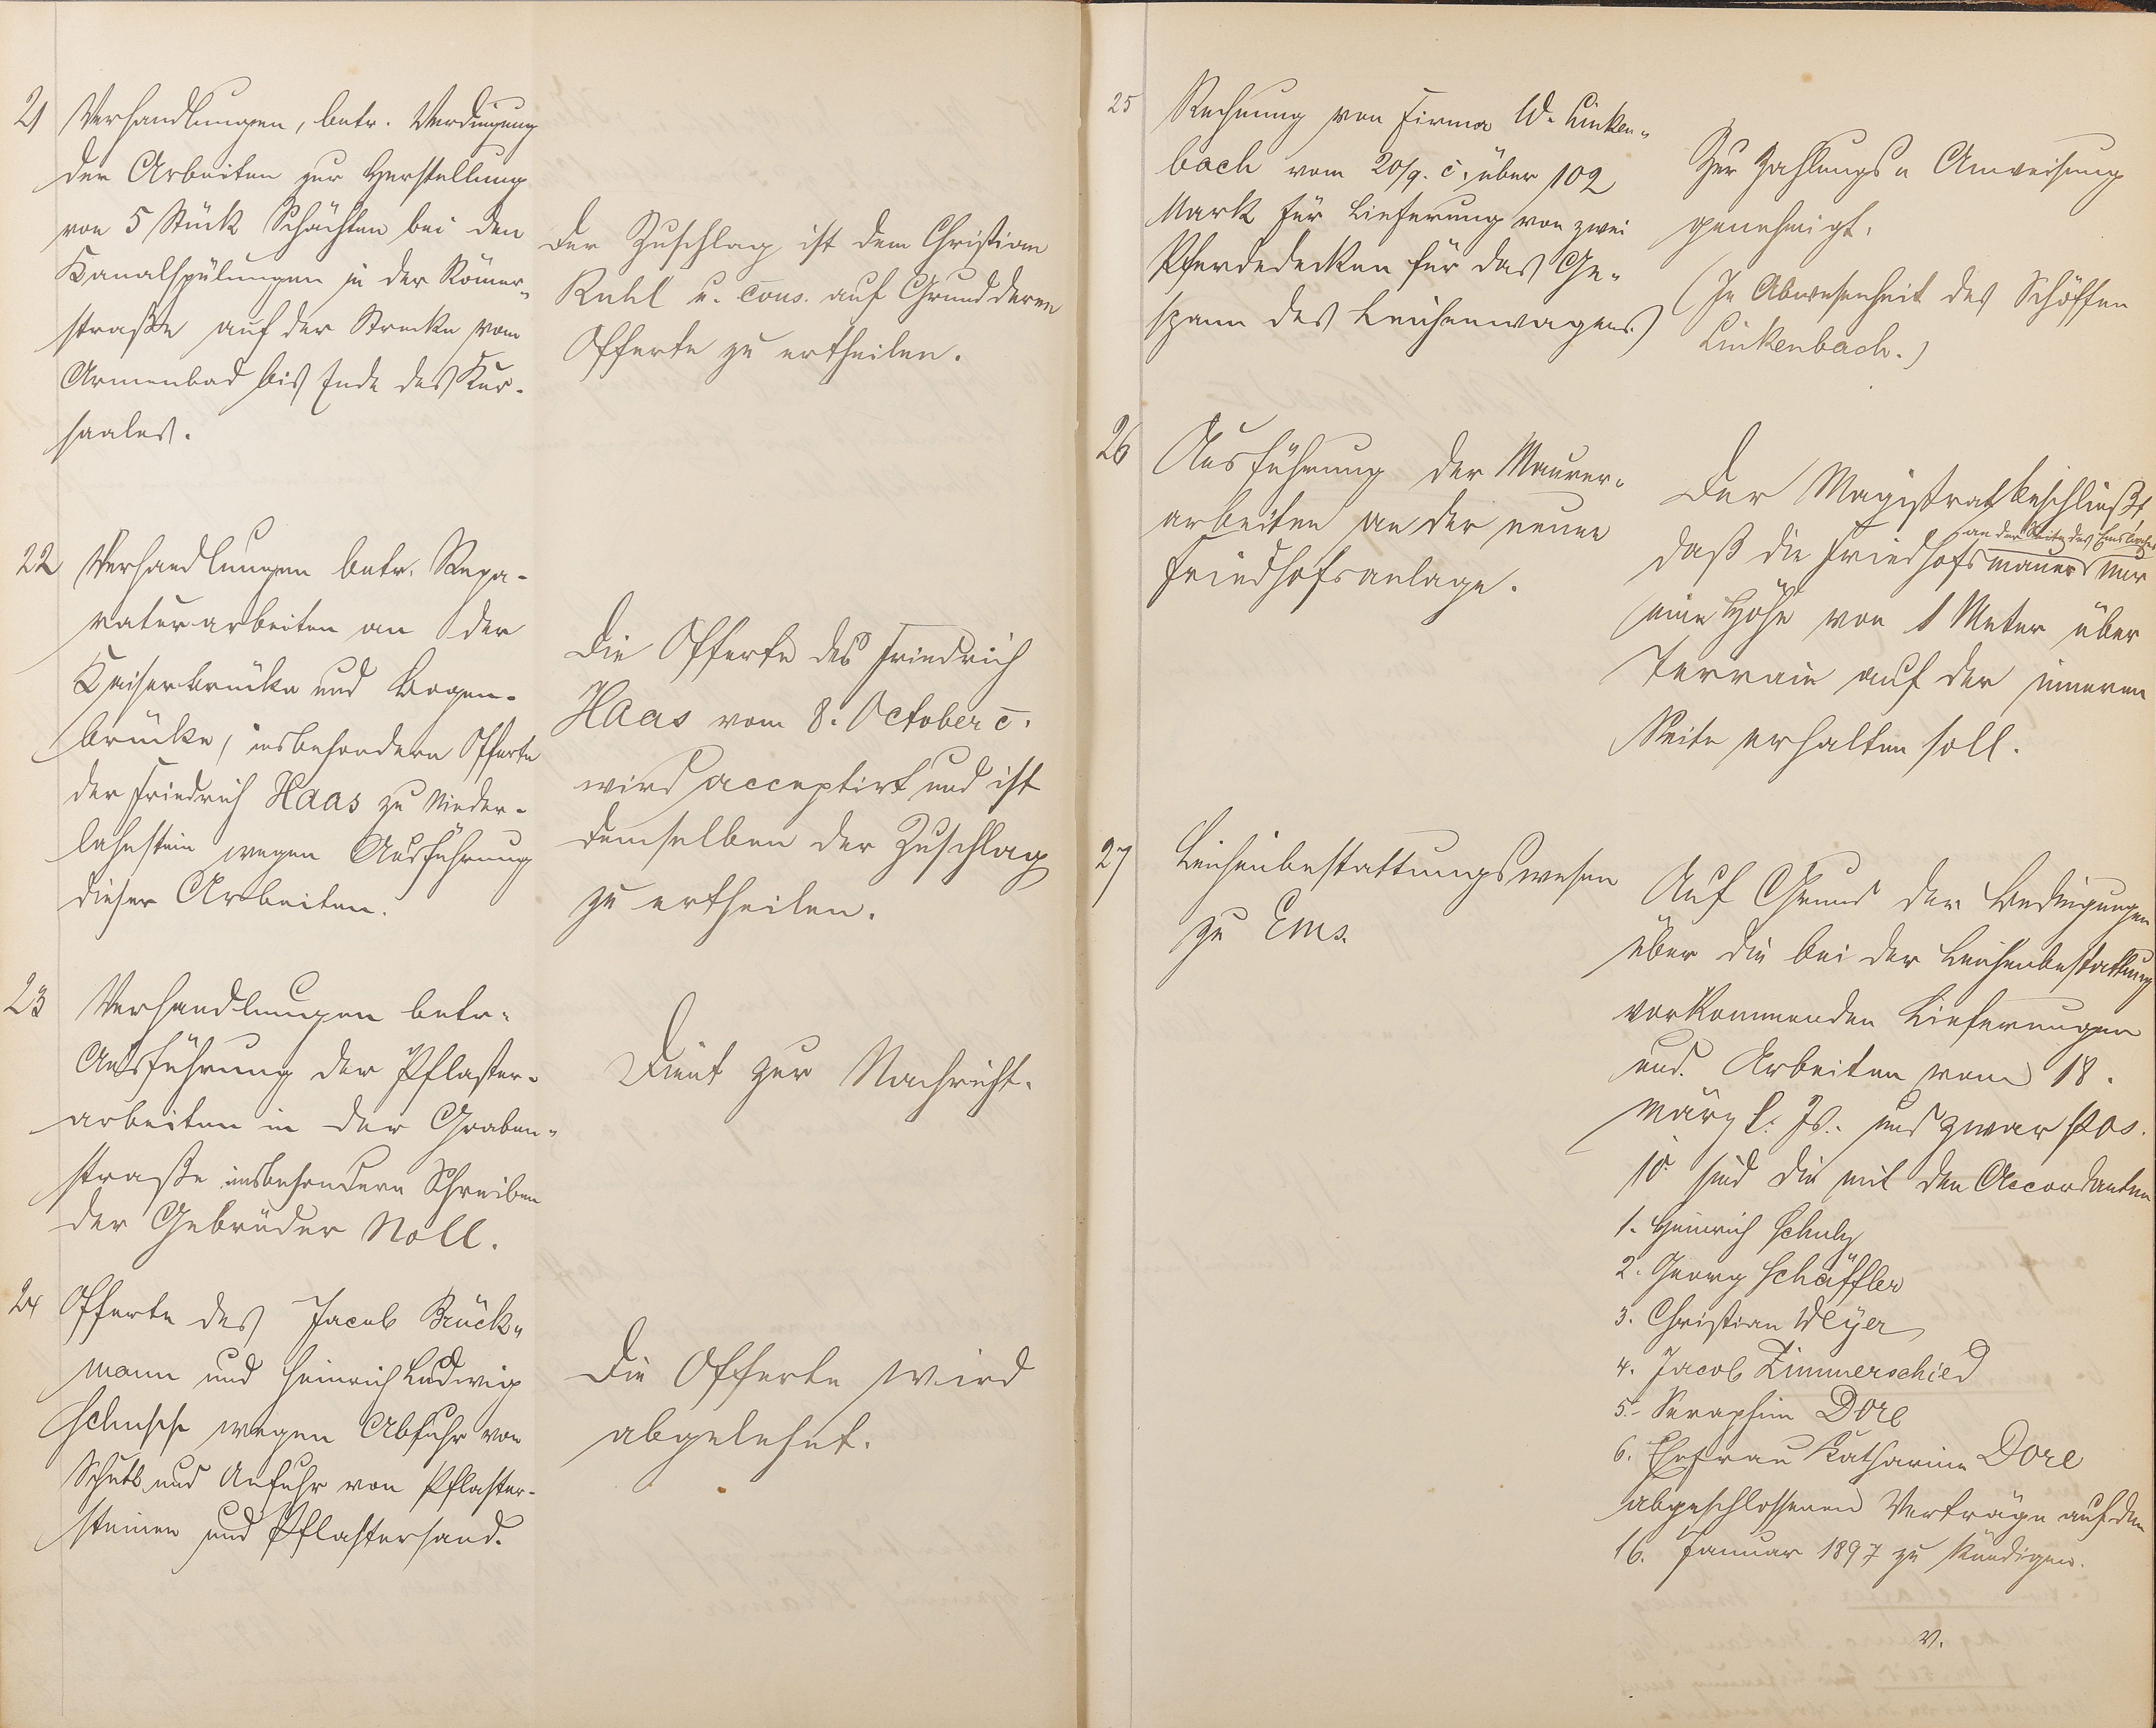 21 Verhandlungen, betr. Verdingung
der Arbeiten zur Herstellung
von 5 Stück Schächten bei den
Kanalspülungen in der Römer-
straße auf der Strecke vom
Armenbad bis Ende des Kur-
saales.
Der Zuschlag ist dem Christian
Ruhl u. Cons. auf Grund deren
Offerte zu ertheilen.
22 Verhandlungen betr. Repa-
raturarbeiten an der
Kaiserbrücke und Bogen-
brücke, insbesondere Offerte
der Friedrich Haas zu Nieder-
lahnstein wegen Ausführung
dieser Arbeiten.
Die Offerte des Friedrich
Haas vom 8. October c.
wird acceptirt und ist
demselben der Zuschlag
zu ertheilen.
23 Verhandlungen betr.
Ausführung der Pflaster-
arbeiten in der Graben-
straße insbesondere Schreiben
der Gebrüder Noll.
Dient zur Nachricht.
24 Offerte des Jacob Brück-
mann und Heinrich Ludwig
wegen Abfuhr von
Schutt und Anfuhr von Pflaster-
steinen und Pflastersand.
Die Offerte wird
abgelehnt.
25 Rechnung von Firma W. Linken-
bach vom 20/9. c. über 102
Mark für Lieferung von zwei
Pferdedecken für das Ge-
spann des Leichenwagens
Zur Zahlungs- Anweisung
genehmigt.
(In Abwesenheit des Schöffen
Linkenbach.)
26 Ausführung der Maurer-
arbeiten an der neuen
Friedhofsanlage.
Der Magistrat beschließt,
an der Seite des Emsbaches
daß die Friedhofsmauer nur
eine Höhe von 1 Meter über
Terrain auf der inneren
Seite erhalten soll.
27 Leichenbestattungswesen
zu Ems.
Auf Grund der Bedingungen
über die bei der Leichenbestattung
vorkommenden Lieferungen
und Arbeiten vom 18.
März l. Js. und zwar Pos.
10 sind die mit den Accordanten
1. Heinrich Schulz
2. Georg Schäffler
3. Christian Weyer
4. Jacob Zimmerschied
5. Seraphim Dore
6. Ehefrau Katharina Dore
abgeschlossenen Verträge auf den
16. Januar 1897 zu kündigen.
V.